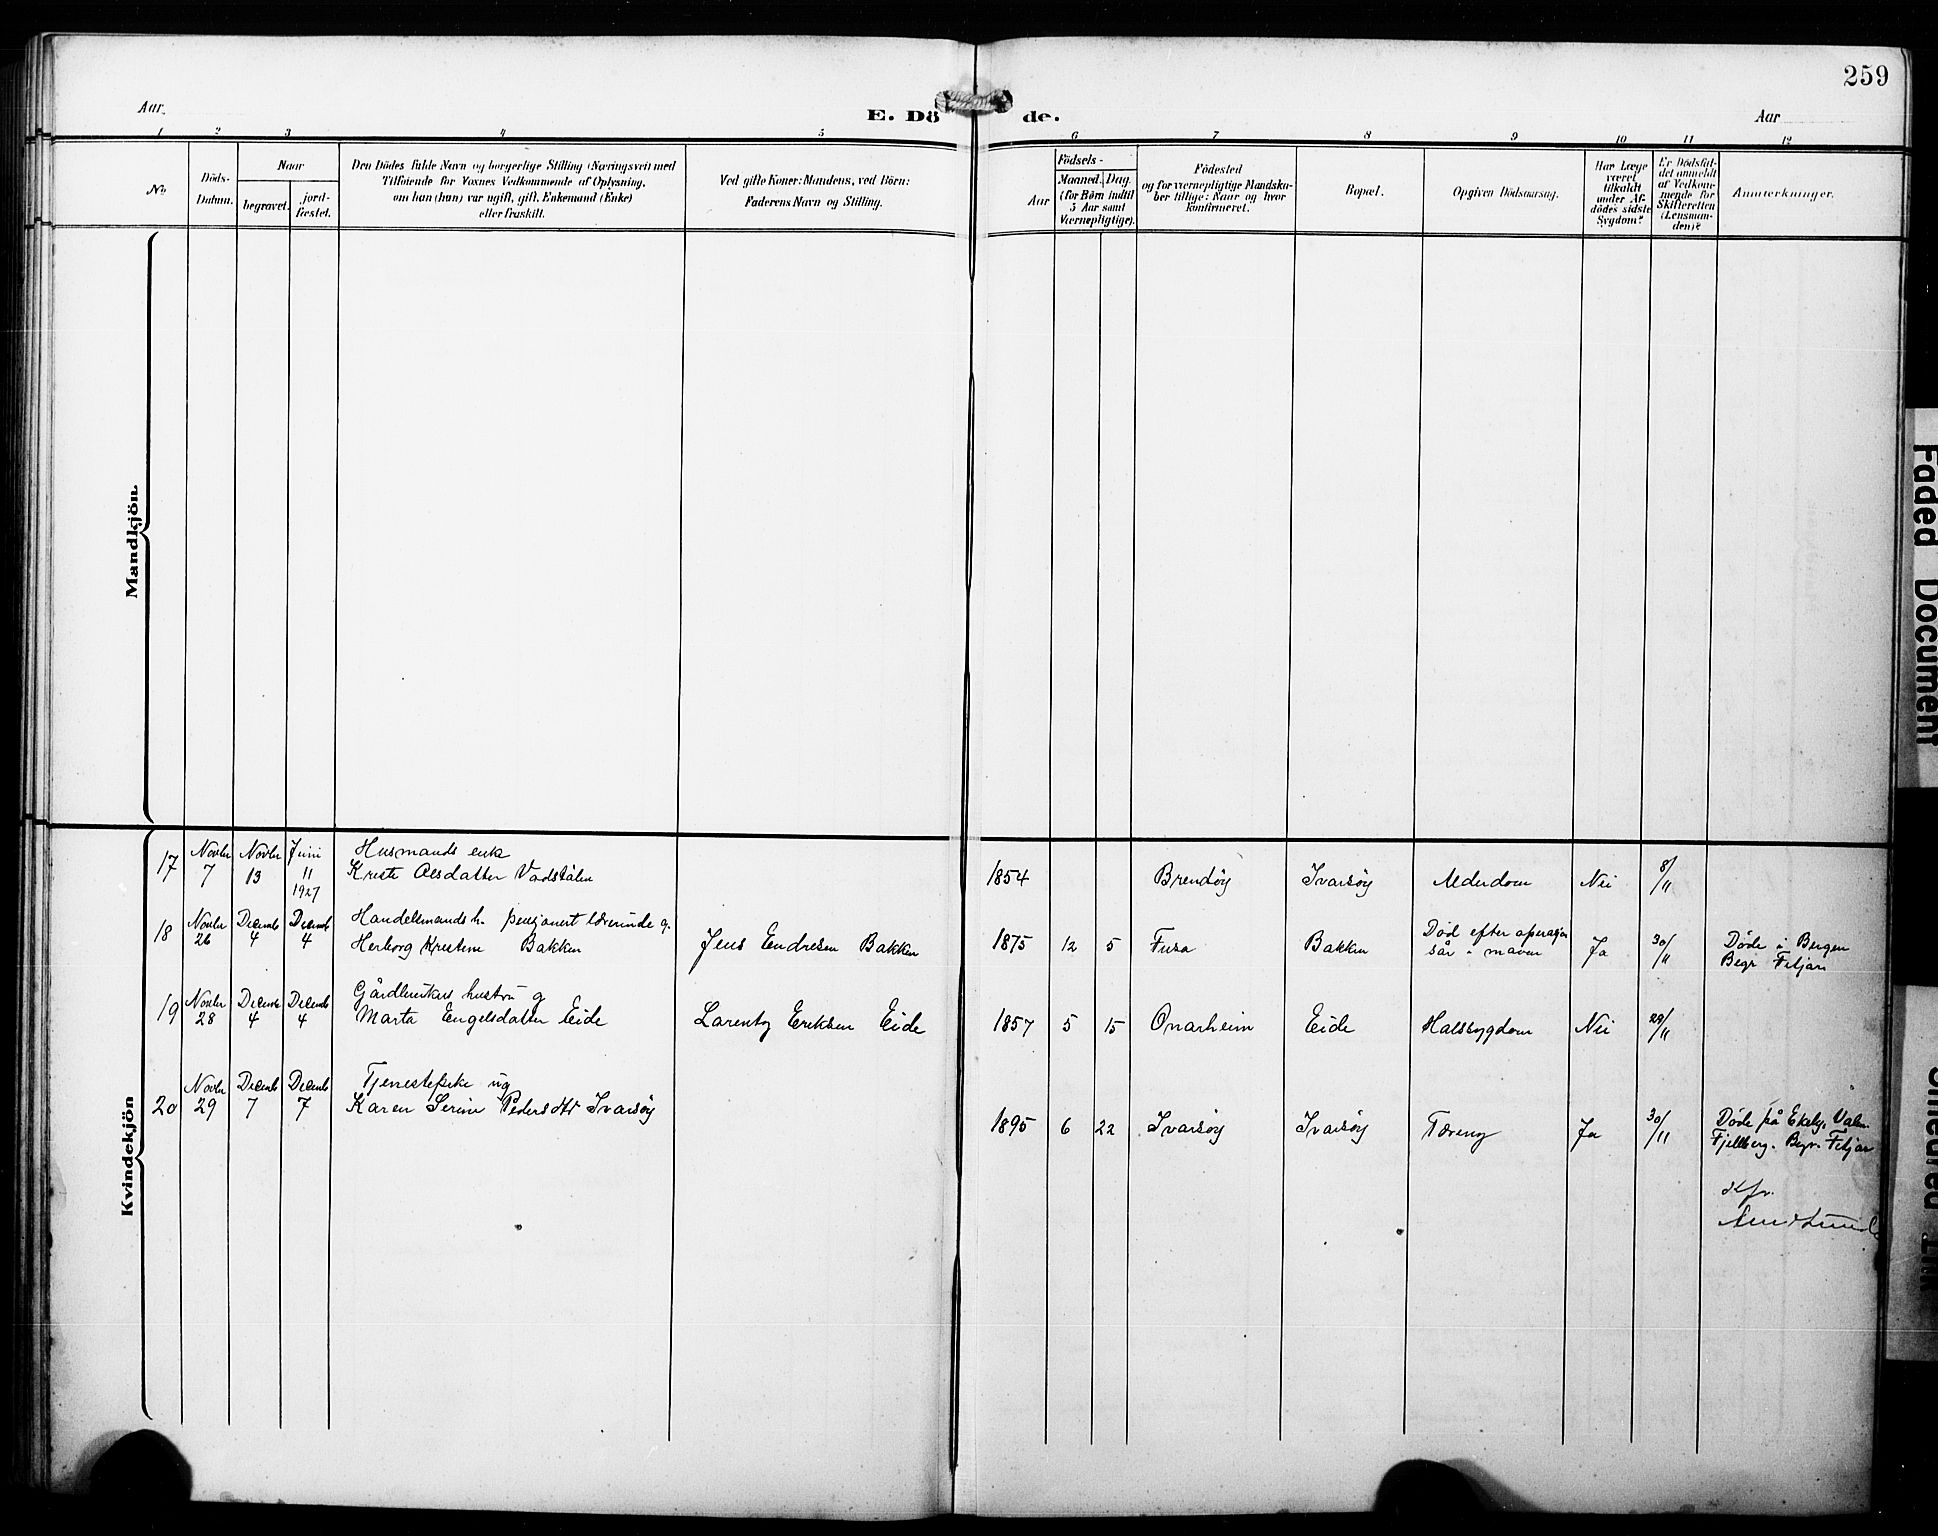 259
Aar
E. Dö de.
Aar
1 2 3 4 5 6 7 8 9 10 11 12
No
Döds-
Datum.
Naar
begravet.
jord-
fæstet.
Den Dödes fulde Navn og borgerlige Stilling (Næringsvei) med
Tilföiende for Voxnes Vedkommende af Oplysning,
om han (hun) var ugift, gift, Enkemand (Enke)
eller fraskilt.
Ved gifte Koner: Mandens, ved Börn:
Faderens Navn og Stilling.
Födsels-
Aar
Maaned. Dag.
(for Børn indtil
5 Aar samt
Værnepligtige).
Födested
og for værnepligtige Mandska-
ber tillige: Naar og hvor
konfirmeret.
Bopæl.
Opgiven Dödsaarsag.
Har Læge
været
tilkaldt
under Af-
dödes sidste
Sygdom?
Er Dödsfal-
det anmeldt
af Vedkom-
mende for
Skifteretten
(Lensman-
den)?
Anmærkninger.
Mandkjön.
Kvindekjön
17 Novbr 7 Novbr 13 Juni 11 1927
Husmands enke
Kristi Olsdatter Vadstålen
1854 Brendöy Ivarsöy Alderdom Nei 8/11
18 Novbr 26 Decemb 4 Decemb 4
Handelsmands h. pensjonert lærerinde g.
Herborg Kristene Bakken
Jens Endresen Bakken
1875 12 5 Fusa Bakken
Død efter operasjon
sår i maven
Ja 30/11
Døde i Bergen
Begr Fitjar
19 Novbr 28 Decemb 4 Decemb 4
Gårdbrukers hustru g
Marta Engelsdatter Eide
Larentz Eriksen Eide
1857 5 15 Onarheim Eide Halssygdom Nei 29/11
20 Novbr 29 Decemb 7 Decemb 7
Tjenestepike ug
Karen Serine Pedersdtr Ivarsöy
1895 6 22 Ivarsöy Ivarsöy Tæring Ja 30/11
Døde på Valen
Fjelberg. Begr. Fitjar
Kfr.
Faded Document